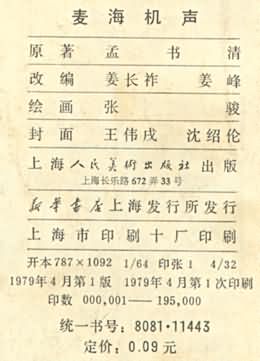 麦海机声
原著 孟书清
改编 姜长祚 姜峰
绘画 张骏
封面 王伟戌 沈绍伦
上海人民美术出版社出版
上海长乐路672弄33号
新华书店上海发行所发行
上海市印刷十厂印刷
开本787×1092 1/64 印张1 4/32
1979年4月第1版 1979年4月第1次印刷
印数 000,001——195,000
统一书号：8081·11443
定价：0.09元